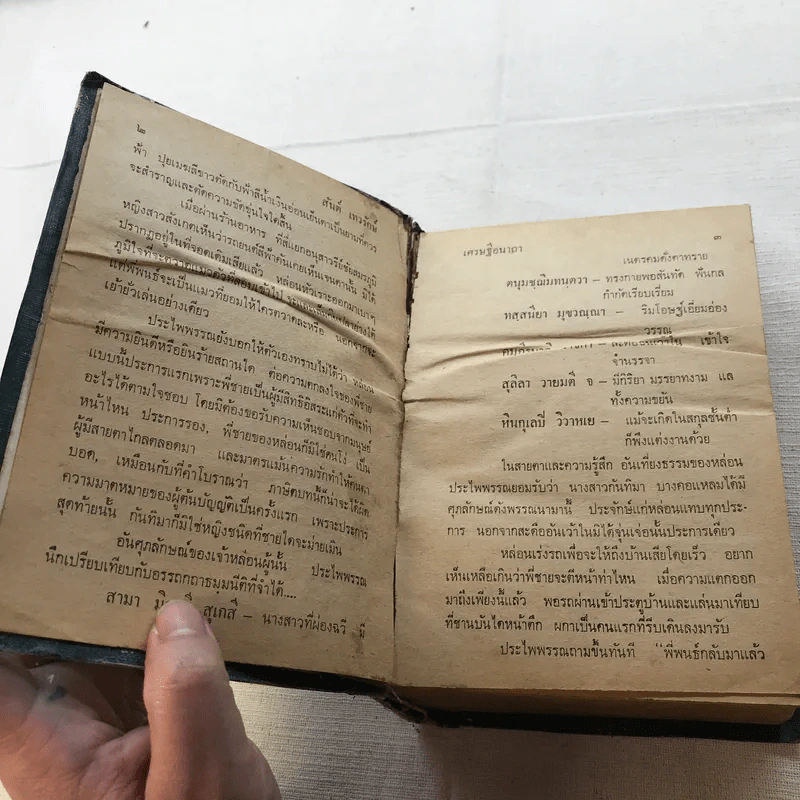 ๒
สันต์ เทวรักษ์
ฟ้า ปุยเมฆสีขาวตัดกับฟ้าสีน้ำเงินอ่อนเย็นตาเป็นยามที่ควร
จะสำราญและตัดความขัดขุ่นใจใดสิ้น
เมื่อผ่านร้านอาหาร ที่สี่แยกอนุสาวรีย์ชัยสมรภูมิ
หญิงสาวสังเกตเห็นว่ารถยนต์สีฟ้าคันเคยเห็นเจนตานั้น มิได้
ปรากฏอยู่ในที่จอดเดิมเสียแล้ว หล่อนหัวเราะออกมาเบาๆ
ภูมิใจที่จะตวาดแมวตัวที่ลอบเข้าไป
แต่พี่พันธ์จะเป็นแมวที่ยอมให้ใครตวาดละหรือ นอกจากจะ
เย้ายั่วเล่นอย่างเดียว
ประไพพรรณยังบอกให้ตัวเองทราบไม่ได้ว่า หล่อน
มีความยินดีหรือยินร้ายสถานใด ต่อความตกลงใจของพี่ชาย
แบบนี้ประการแรกเพราะพี่ชายเป็นผู้มีสิทธิอิสระแก่ตัวที่จะทำ
อะไรได้ตามใจชอบ โดยมิต้องขอรับความเห็นชอบจากมนุษย์
หน้าไหน ประการรอง, พี่ชายของหล่อนก็มิใช่คนโง่ เป็น
ผู้มีสายตาไกลตลอดมา และมาตรแม้นความรักทำให้คนตา
บอด, เหมือนกับที่คำโบราณว่า ภาษิตบทนี้ก็น่าจะได้ผิด
ความมาดหมายของผู้ต้นบัญญัติเป็นครั้งแรก เพราะประการ
สุดท้ายนั้น กันทิมาก็มิใช่หญิงชนิดที่ชายใดจะม่ายเมิน
อันศุภลักษณ์ของเจ้าหล่อนผู้นั้น ประไพพรรณ
นึกเปรียบเทียบกับอรรถกถาธมฺมนีติที่จำได้....
สามา สุเกสี – นางสาวที่ผ่องฉวี มี
๓
เศรษฐีอนาถา
เนตรคมดั่งตาทราย
ตนุมชฺฌิมทนฺตวา – ทรงกายพอสันทัด ฟันกล
กำกัดเรียบเรี่ยม
ทสฺสนียา มุขวณฺณา – ริมโอษฐ์เอี่ยมอ่อง
วรรณ
เข้าใจ
จำนรรจา
สุสีลา วายมตี จ – มีกิริยา มรรยาทงาม แล
ทั้งความขยัน
หินกุเลปี วิวาหเย – แม้จะเกิดในสกุลชั้นต่ำ
ก็พึงแต่งงานด้วย
ในสายตาและความรู้สึก อันเที่ยงธรรมของหล่อน
ประไพพรรณยอมรับว่า นางสาวกันทิมา บางคอแหลมได้มี
ศุภลักษณ์ดังพรรณนามานี้ ประจักษ์แก่หล่อนแทบทุกประ-
การ นอกจากสะคืออันเว้าในมิได้จุ่นเจ่อนั้นประการเดียว
หล่อนเร่งรถเพื่อจะให้ถึงบ้านเสียโดยเร็ว อยาก
เห็นเหลือเกินว่าพี่ชายจะตีหน้าท่าไหน เมื่อความแตกออก
มาถึงเพียงนี้แล้ว พอรถผ่านเข้าประตูบ้านและแล่นมาเทียบ
ที่ชานบันไดหน้าตึก ผกาเป็นคนแรกที่รีบเดินลงมารับ
ประไพพรรณถามขึ้นทันที “พี่พันธ์กลับมาแล้ว